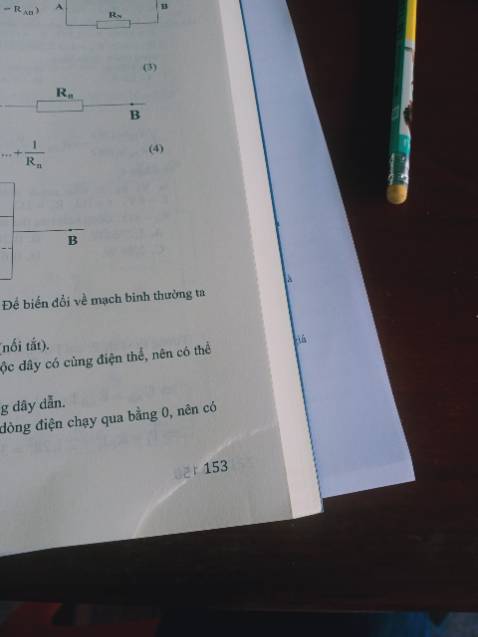 – R_AB) A B
R_N
(3)
R_n
B
...+ 1/R_n (4)
B
Để biến đổi về mạch bình thường ta
(nối tắt).
ộc dây có cùng điện thế, nên có thể
g dây dẫn.
dòng điện chạy qua bằng 0, nên có
153